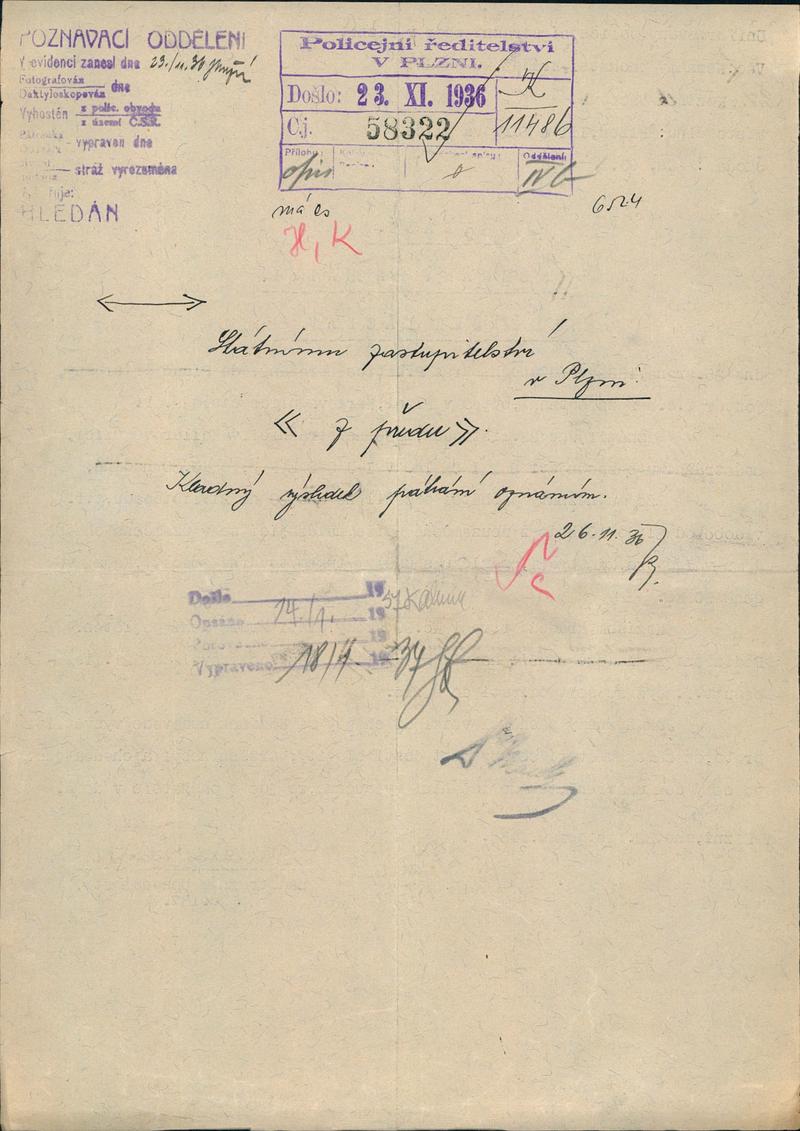 POZNÁVACÍ ODDĚLENÍ
V evidenci zanesl dne 23./11. 36
Fotografován
Daktyloskopován dne
Vyhoštěn z polic. obvodu
z území Č.S.R.
vypraven dne
stráž vyrozuměna
HLEDÁN
Policejní ředitelství
V PLZNI.
Došlo: 23. XI. 1936
K
Č.j. 58322
11486
Přílohy:
opis
Oddělení:
IV b
má čs
6524
H, K
Státnímu zastupitelství
v Plzni.
« z předu ».
Kladný výsledek pátrání oznámím.
26. 11. 36
Došlo 19
Opsáno 14./1. 1937
Porovnáno 19
Vypraveno 18/1 1937